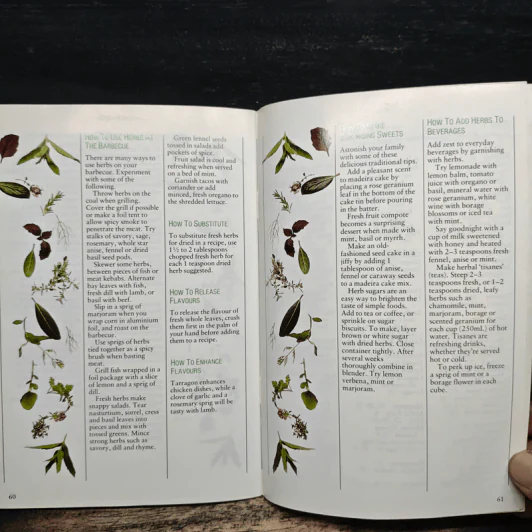 HOW TO USE HERBS AT
THE BARBECUE
There are many ways to
use herbs on your
barbecue. Experiment
with some of the
following.
Throw herbs on the
coal when grilling.
Cover the grill if possible
or make a foil tent to
allow spicy smoke to
penetrate the meat. Try
stalks of savory, sage,
rosemary, whole star
anise, fennel or dried
basil seed pods.
Skewer some herbs,
between pieces of fish or
meat kebabs. Alternate
bay leaves with fish,
fresh dill with lamb, or
basil with beef.
Slip in a sprig of
marjoram when you
wrap corn in aluminium
foil, and roast on the
barbecue.
Use sprigs of herbs
tied together as a spicy
brush when basting
meat.
Grill fish wrapped in a
foil package with a slice
of lemon and a sprig of
dill.
Fresh herbs make
snappy salads. Tear
nasturtium, sorrel, cress
and basil leaves into
pieces and mix with
tossed greens. Mince
strong herbs such as
savory, dill and thyme.
Green fennel seeds
tossed in salads add
pockets of spice.
Fruit salad is cool and
refreshing when served
on a bed of mint.
Garnish tacos with
coriander or add
minced, fresh oregano to
the shredded lettuce.
HOW TO SUBSTITUTE
To substitute fresh herbs
for dried in a recipe, use
1½ to 2 tablespoons
chopped fresh herb for
each 1 teaspoon dried
herb suggested.
HOW TO RELEASE
FLAVOURS
To release the flavour of
fresh whole leaves, crush
them first in the palm of
your hand before adding
them to a recipe.
HOW TO ENHANCE
FLAVOURS
Tarragon enhances
chicken dishes, while a
clove of garlic and a
rosemary sprig will be
tasty with lamb.
60
SWEETS
Astonish your family
with some of these
delicious traditional tips.
Add a pleasant scent
to madeira cake by
placing a rose geranium
leaf in the bottom of the
cake tin before pouring
in the batter.
Fresh fruit compote
becomes a surprising
dessert when made with
mint, basil or myrrh.
Make an old-
fashioned seed cake in a
jiffy by adding 1
tablespoon of anise,
fennel or caraway seeds
to a madeira cake mix.
Herb sugars are an
easy way to brighten the
taste of simple foods.
Add to tea or coffee, or
sprinkle on sugar
biscuits. To make, layer
brown or white sugar
with dried herbs. Close
container tightly. After
several weeks
thoroughly combine in
blender. Try lemon
verbena, mint or
marjoram.
HOW TO ADD HERBS TO
BEVERAGES
Add zest to everyday
beverages by garnishing
with herbs.
Try lemonade with
lemon balm, tomato
juice with oregano or
basil, mineral water with
rose geranium, white
wine with borage
blossoms or iced tea
with mint.
Say goodnight with a
cup of milk sweetened
with honey and heated
with 2–3 teaspoons fresh
fennel, anise or mint.
Make herbal 'tisanes'
(teas). Steep 2–3
teaspoons fresh, or 1–2
teaspoons dried, leafy
herbs such as
chamomile, mint,
marjoram, borage or
scented geranium for
each cup (250mL) of hot
water. Tisanes are
refreshing drinks,
whether they're served
hot or cold.
To perk up ice, freeze
a sprig of mint or a
borage flower in each
cube.
61